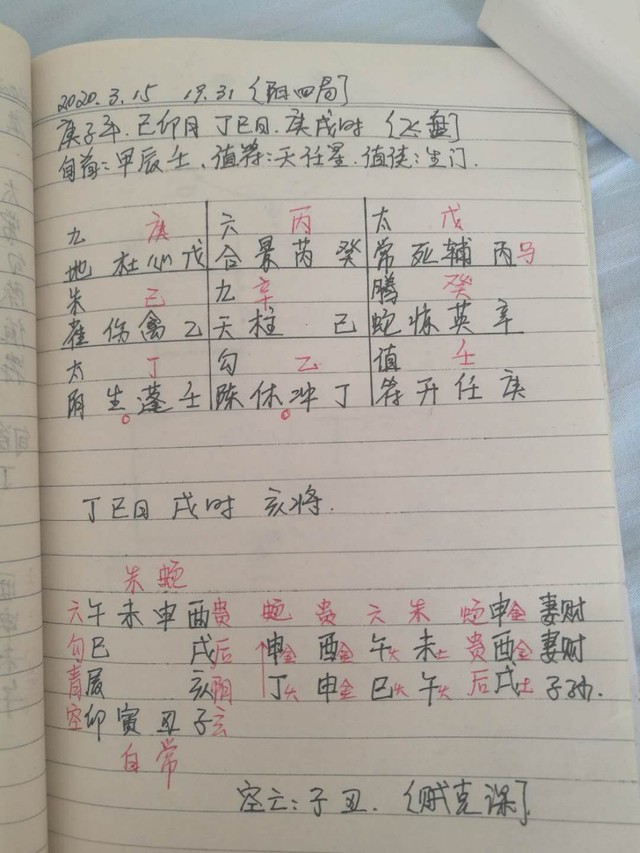 2020.3.15 19.31 (阳四局]
庚子年.己卯月 丁巳日.庚戌时 (飞盘]
旬首:甲辰壬、值符:天任星.值使:生门.
九 庚 六 丙 太 戊
地 杜心戊 合景芮癸 常死辅丙马
朱 己 九 辛 腾 癸
雀伤禽乙 天柱 己 蛇惊英辛
太 丁 勾 乙 值 壬
阴生蓬壬 陈休冲丁 符开任庚
丁巳日 戌时 亥将.
朱 蛇
六午未申酉贵 蛇 贵 六 朱 蛇申金妻财
勾巳 戌后 申金 酉金 午火 未土 贵酉金妻财
青辰 亥阴 丁火 申金 巳火 午火 后戌土子孙.
空卯寅丑子玄
白 常
空亡:子丑. (贼克课].